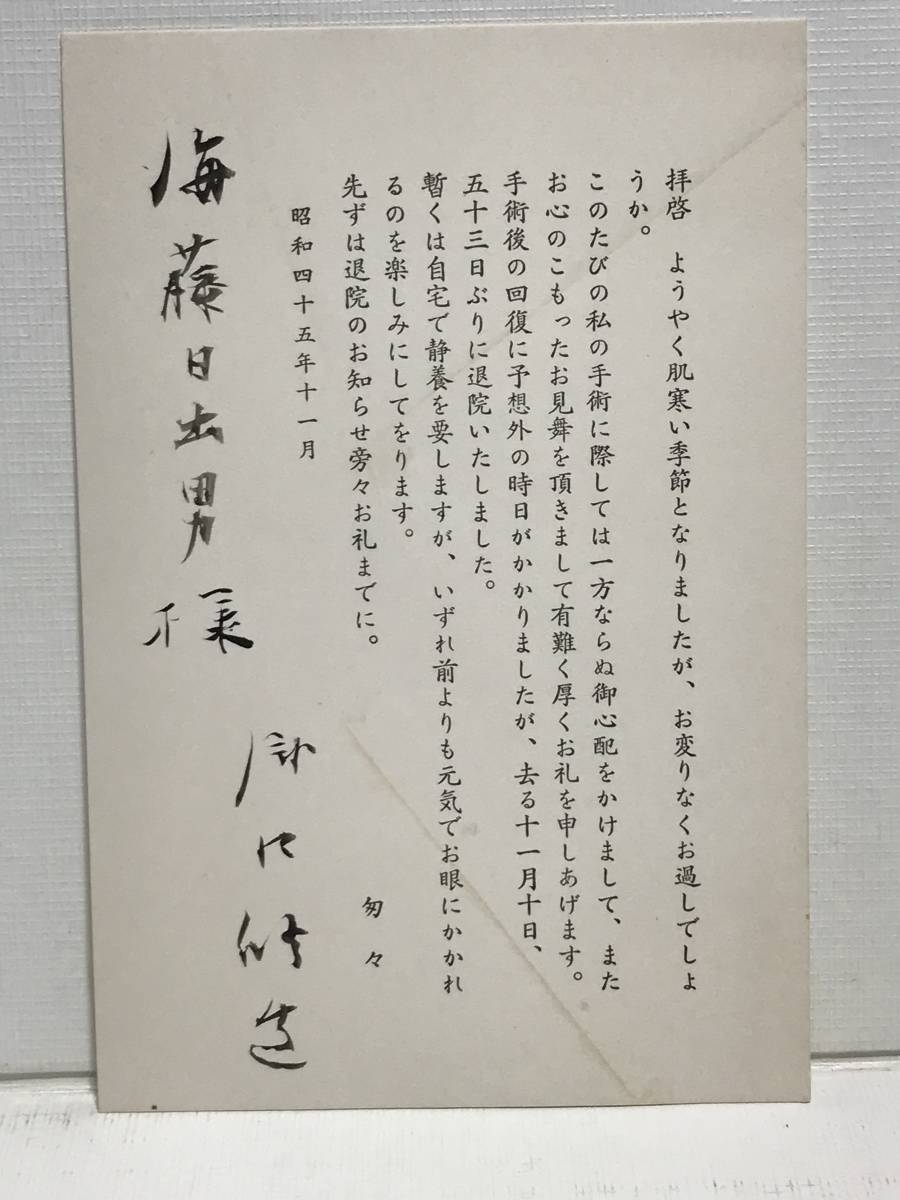 拝啓　ようやく肌寒い季節となりましたが、お変りなくお過しでしょ
うか。
このたびの私の手術に際しては一方ならぬ御心配をかけまして、また
お心のこもったお見舞を頂きまして有難く厚くお礼を申しあげます。
手術後の回復に予想外の時日がかかりましたが、去る十一月十日、
五十三日ぶりに退院いたしました。
暫くは自宅で静養を要しますが、いずれ前よりも元気でお眼にかかれ
るのを楽しみにしてをります。
先ずは退院のお知らせ旁々お礼までに。
匆々
昭和四十五年十一月
海藤日出男様